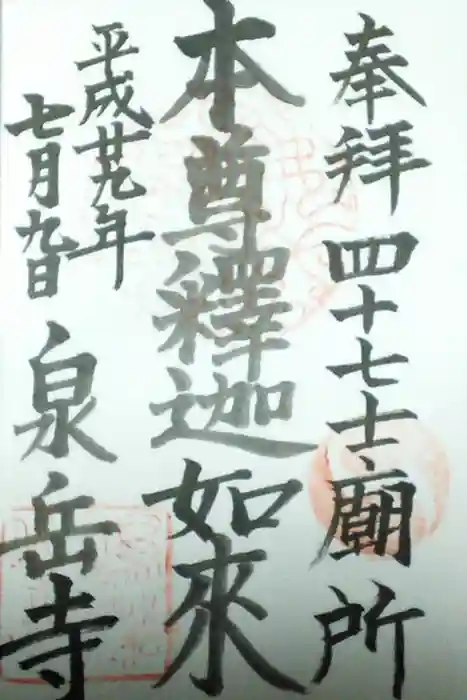 奉拜 四十七士廟所
本尊釋迦如來
平成廿九年
七月九日
泉岳寺